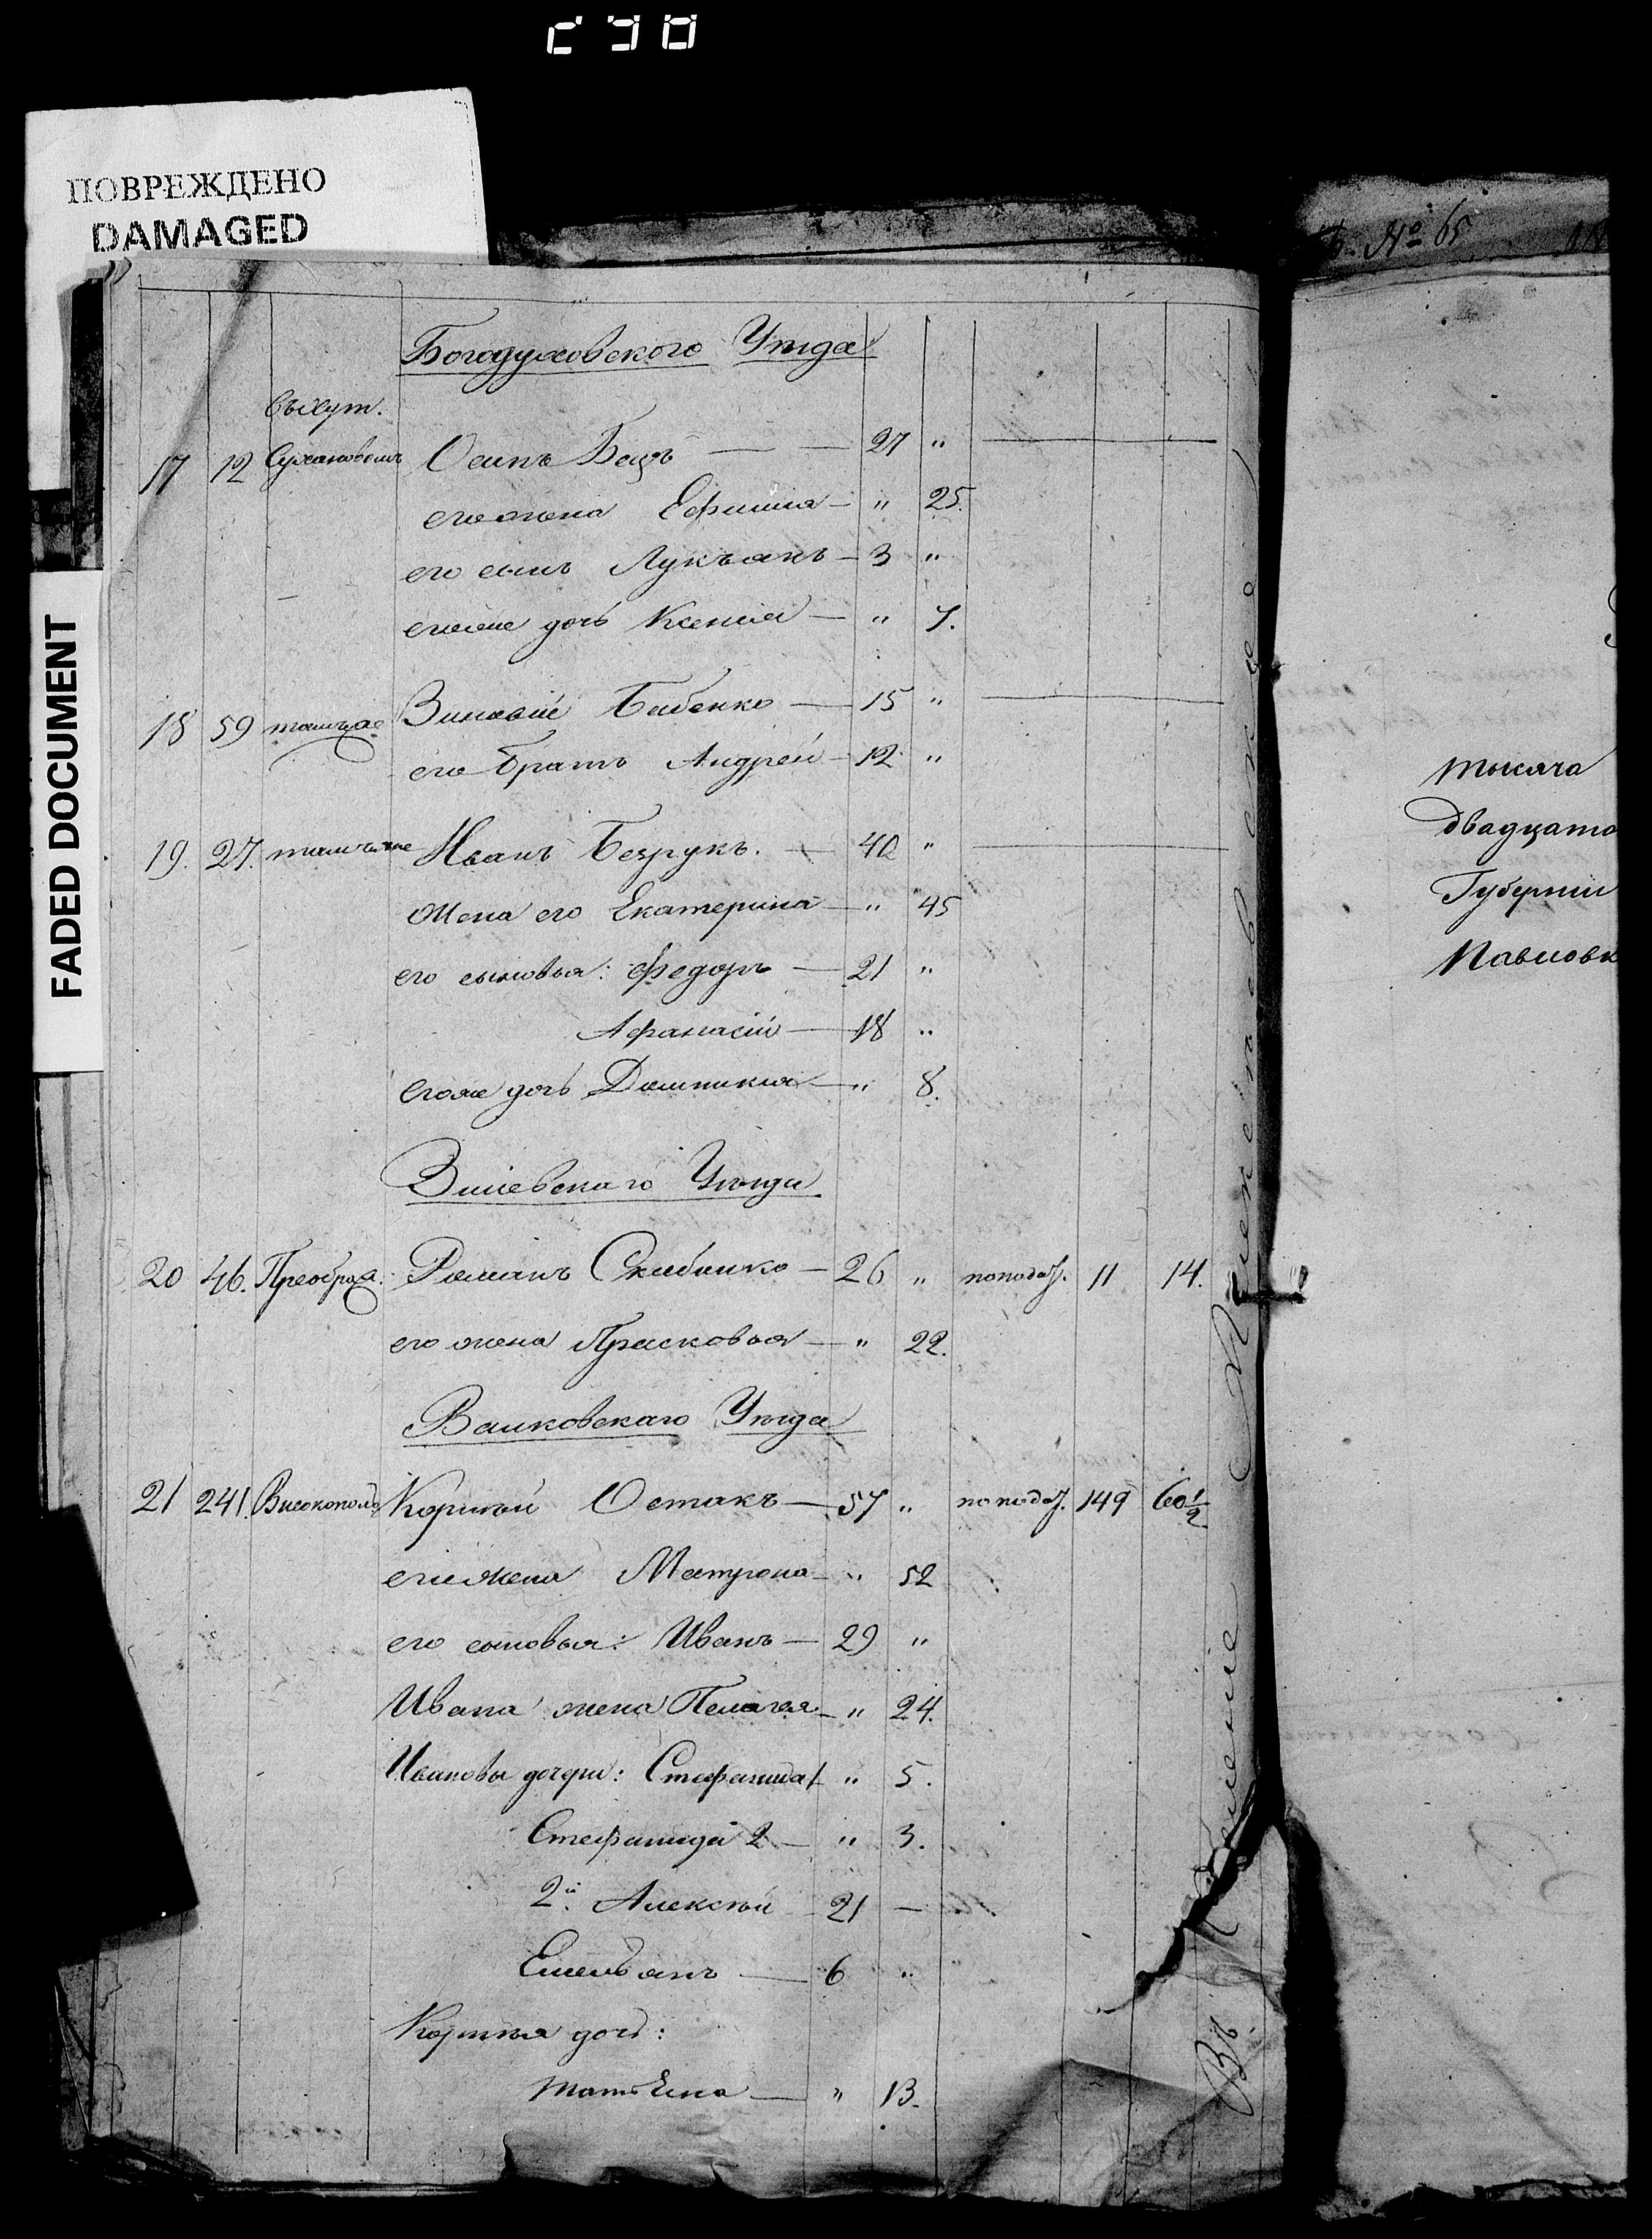 ПОВРЕЖДЕНО
DAMAGED
FADED DOCUMENT
№ 65
Богодуховского Уѣзда
въ хут.
17 12 Сухановомъ Осипъ Бецъ — — 27 "
его жена Ефимия — " 25.
его сынъ Лукъянъ — 3 "
его же дочь Ксенія — " 7.
18 59 тамъ же Зиновій Бабенко — 15 "
его братъ Андрей — 12 "
19. 27. тамъ же Иванъ Безрукъ. — 40 "
Жена его Екатерина — " 45
его сыновья: Федоръ — 21 "
Афанасій — 18 "
его же дочь Домникия — " 8.
Зміевскаго Уѣзда
20 46. Преобраз: Романъ Скибинко — 26 " поподаз. 11 14.
его жена Прасковья — " 22.
Валковскаго Уѣзда
21 241. Високополь Корнѣй Остакъ — 57 " поподаз. 149 60 1/2
его жена Матрона — " 52
его сыновья: Иванъ — 29 "
Ивана жена Пелагея — " 24.
Ивановы дочери: Стефанида 1 " 5.
Стефанида 2 — " 3.
2й. Алексѣй — 21 —
Емельянъ — 6 "
Корнѣя дочь:
Татьяна — " 13.
тысяча
двадцато
Губерніи
Павловк